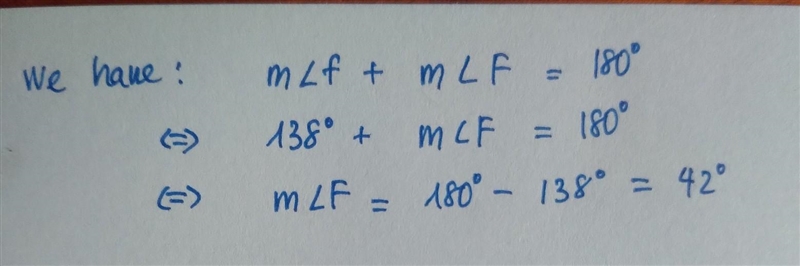 We have: m∠f + m∠F = 180°
<=> 138° + m∠F = 180°
<=> m∠F = 180° - 138° = 42°